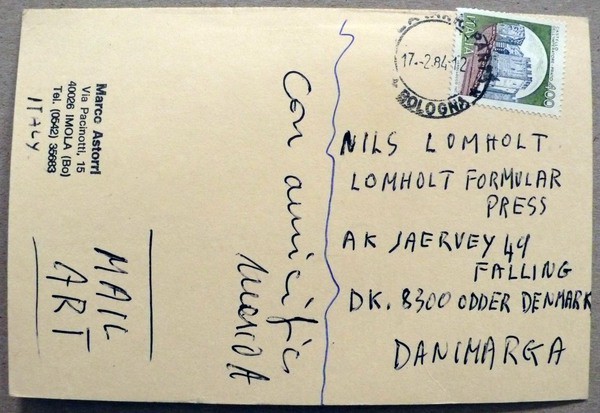 Marco Astorri
Via Pacinotti, 15
40026 IMOLA (Bo)
Tel. (0542) 35683
ITALY.
MAIL
ART
Con amicizia
Marco A
17.-2.84-12
BOLOGNA
ITALIA
400
NILS LOMHOLT
LOMHOLT FORMULAR
PRESS
AKSAERVEJ 49
FALLING
DK. 8300 ODDER DENMARK
DANIMARGA